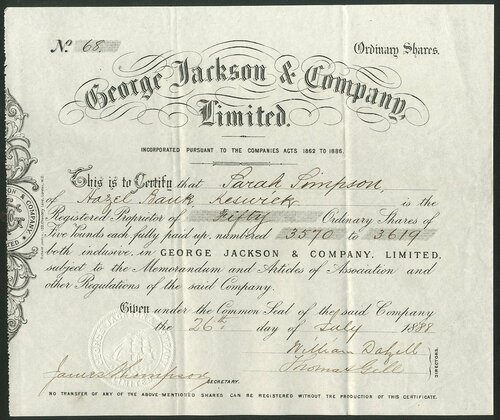 No. 68. Ordinary Shares.
George Jackson & Company,
Limited.
INCORPORATED PURSUANT TO THE COMPANIES ACTS 1862 TO 1886.
This is to Certify that Sarah Simpson,
of Hazel Bank, Keswick is the
Registered Proprietor of Fifty Ordinary Shares of
Five Pounds each, fully paid up, numbered 3570 to 3619
both inclusive, in GEORGE JACKSON & COMPANY, LIMITED,
subject to the Memorandum and Articles of Association and
other Regulations of the said Company.
Given under the Common Seal of the said Company
the 26th day of July 1888
William Dalzell
Thomas Gill
DIRECTORS.
James Thompson SECRETARY.
NO TRANSFER OF ANY OF THE ABOVE-MENTIONED SHARES CAN BE REGISTERED WITHOUT THE PRODUCTION OF THIS CERTIFICATE.